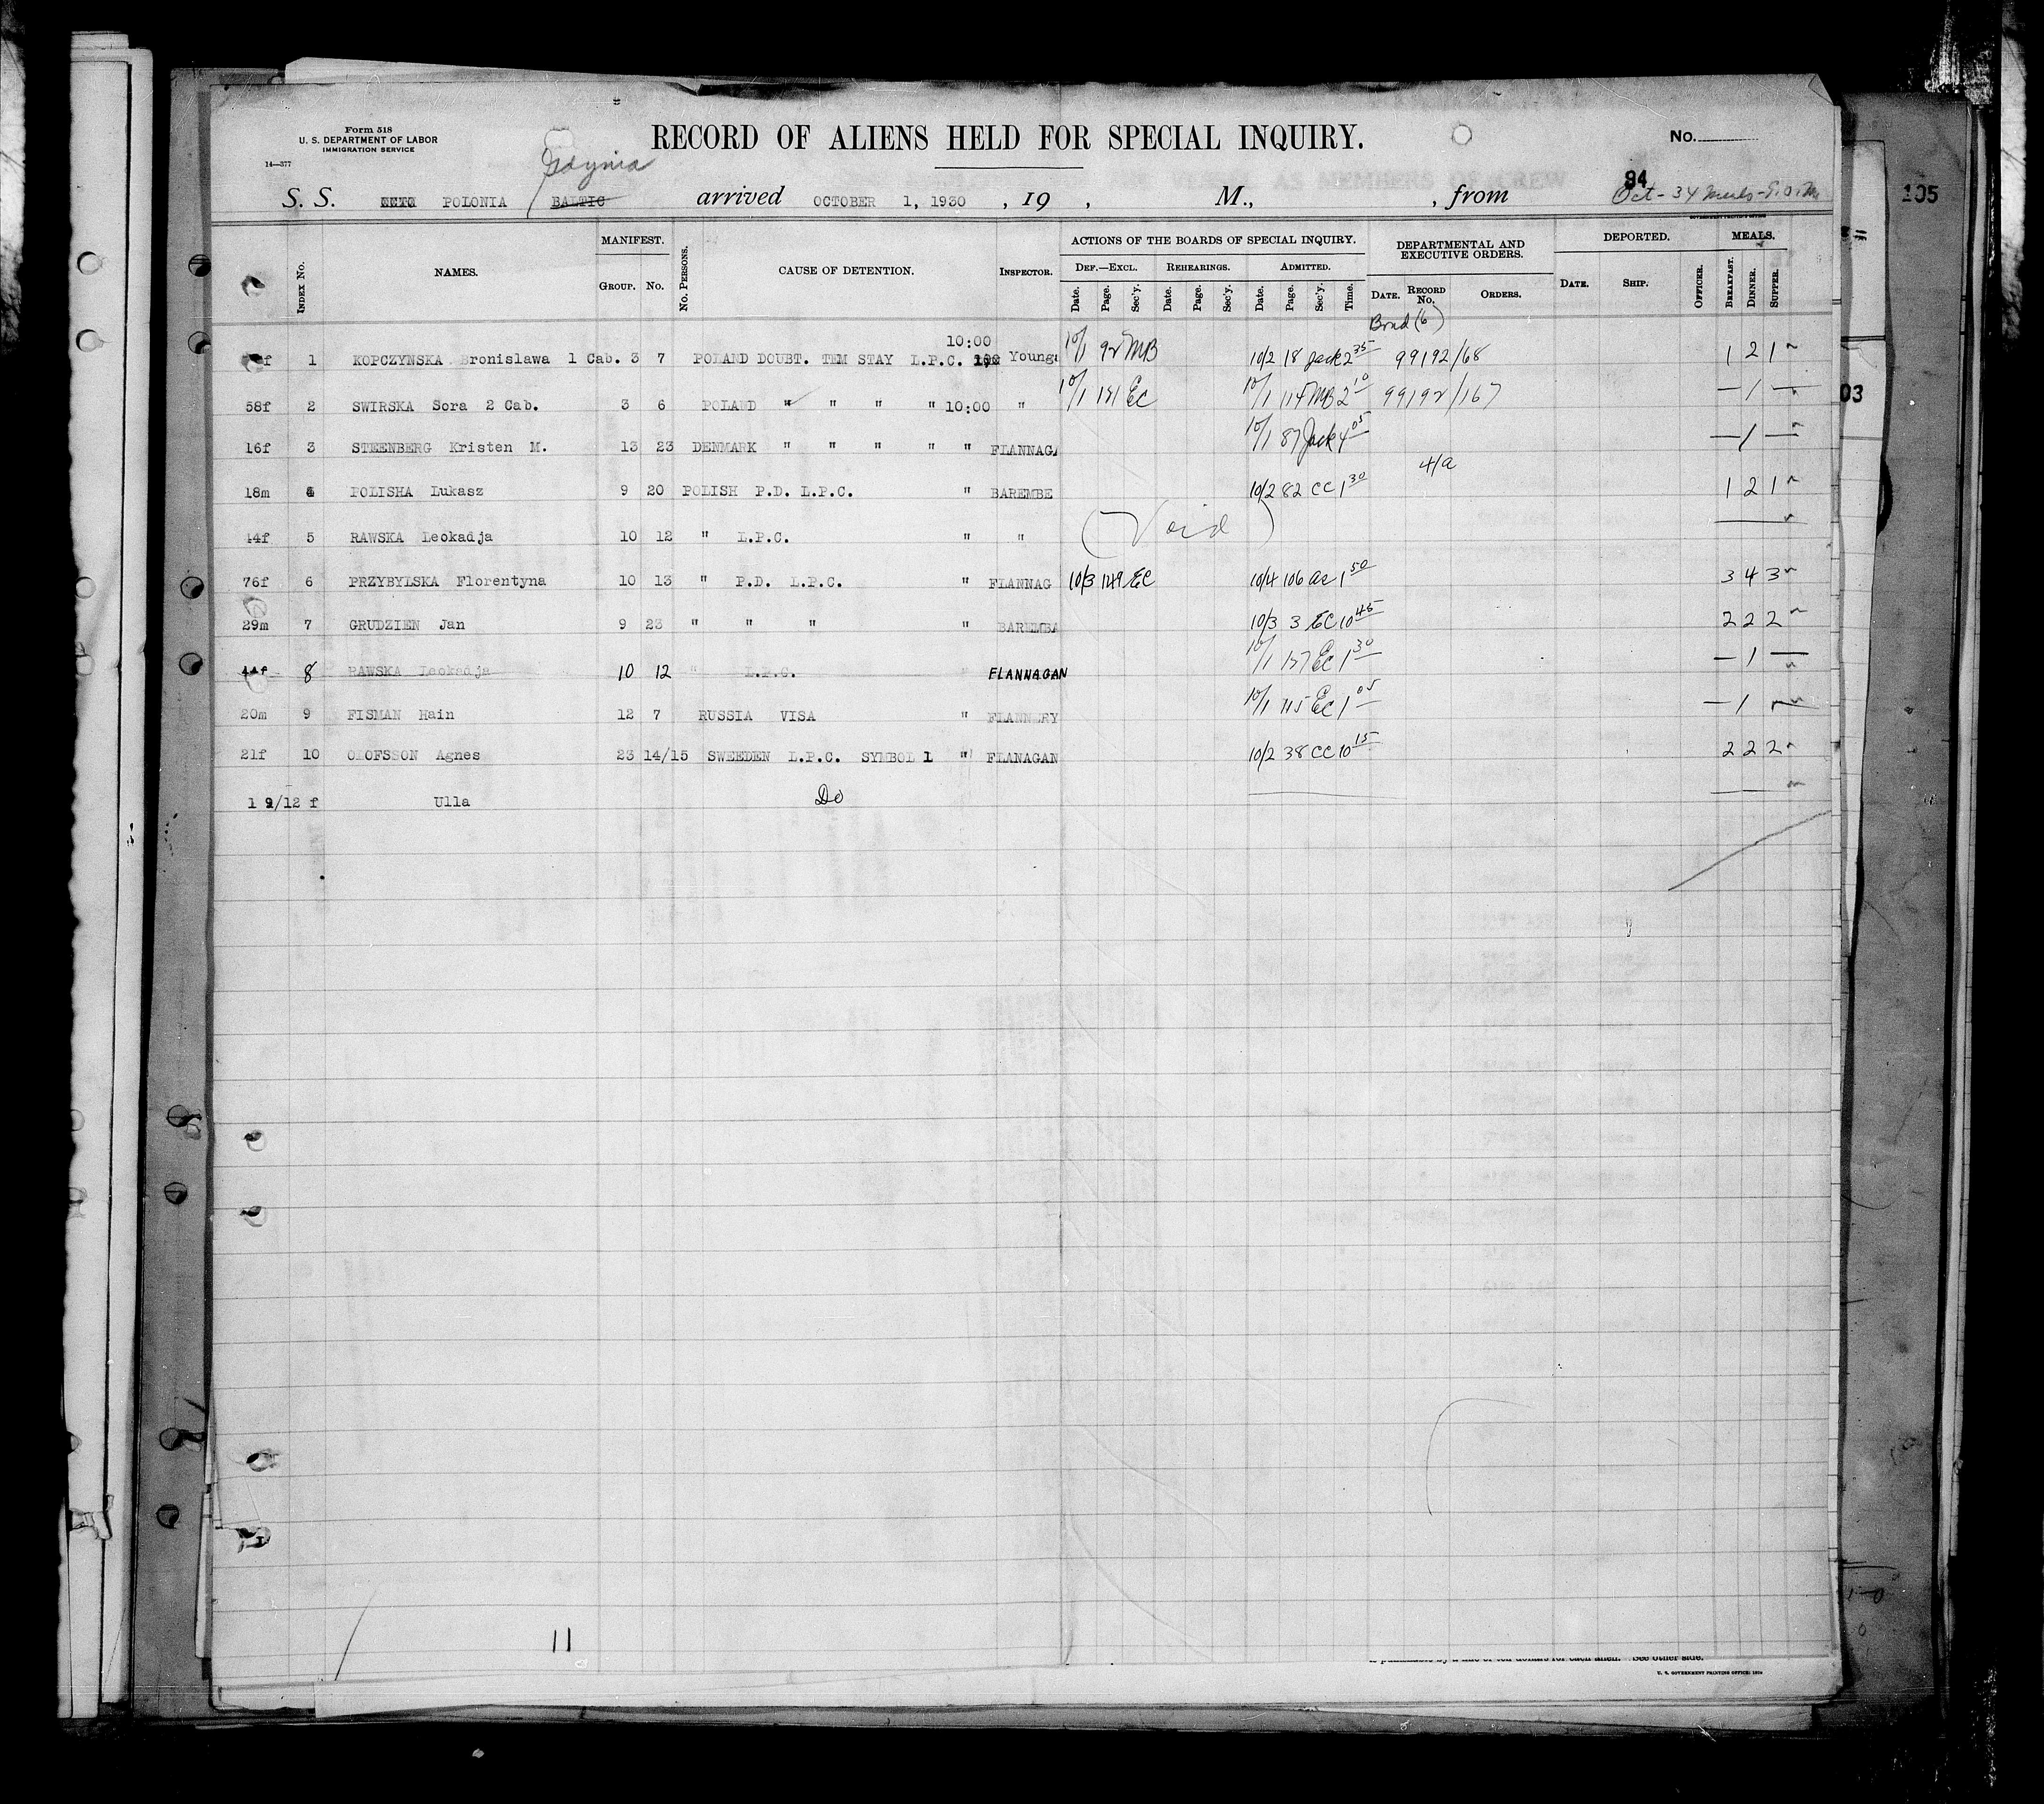 Form 518
U. S. DEPARTMENT OF LABOR
IMMIGRATION SERVICE
14—377
RECORD OF ALIENS HELD FOR SPECIAL INQUIRY.
No.
Gdynia
S. S. POLONIA BALTIC arrived OCTOBER 1, 1930 , 19 , M., , from
94
Oct - 34 Meals -
105
03
INDEX No. NAMES. MANIFEST. GROUP. No. No. PERSONS. CAUSE OF DETENTION. INSPECTOR. ACTIONS OF THE BOARDS OF SPECIAL INQUIRY. DEF.—EXCL. REHEARINGS. ADMITTED. DEPARTMENTAL AND EXECUTIVE ORDERS. DEPORTED. MEALS.
Date. Page. Sec'y. Date. Page. Sec'y. Date. Page. Sec'y. Time. DATE. RECORD No. ORDERS. DATE. SHIP. OFFICER. BREAKFAST. DINNER. SUPPER.
Bond (6)
10:00
f 1 KOPCZYNSKA Bronislawa 1 Cab. 3 7 POLAND DOUBT. TEM STAY L.P.C. Young 10/1 92 MB 10/2 18 Jack 2 35 99192/68 1 2 1
58f 2 SWIRSKA Sora 2 Cab. 3 6 POLAND " " " " 10:00 " 10/1 191 EC 10/1 114 MB 2 10 99192/167 — 1 —
16f 3 STEENBERG Kristen M. 13 23 DENMARK " " " " " FLANNAGA 10/1 87 Jack 4 05 — 1 —
4/a
18m 4 POLISHA Lukasz 9 20 POLISH P.D. L.P.C. " BAREMBE 10/2 82 CC 1 30 1 2 1
44f 5 RAWSKA Leokadja 10 12 " L.P.C. " " (Void)
76f 6 PRZYBYLSKA Florentyna 10 13 " P.D. L.P.C. " FLANNAG 10/3 149 EC 10/4 106 ac 1 50 3 4 3
29m 7 GRUDZIEN Jan 9 23 " " " " BAREMBA 10/3 3 EC 10 45 2 2 2
44f 8 RAWSKA Leokadja 10 12 " L.P.C. " FLANNAGAN 10/1 137 EC 1 30 — 1 —
20m 9 FISMAN Hain 12 7 RUSSIA VISA " FLANNERY 10/1 115 EC 1 05 — 1 —
21f 10 OLOFSSON Agnes 23 14/15 SWEEDEN L.P.C. SYMBOL 1 " FLANAGAN 10/2 38 CC 10 15 2 2 2
1 9/12 f Ulla Do
11
See other side.
U. S. GOVERNMENT PRINTING OFFICE: